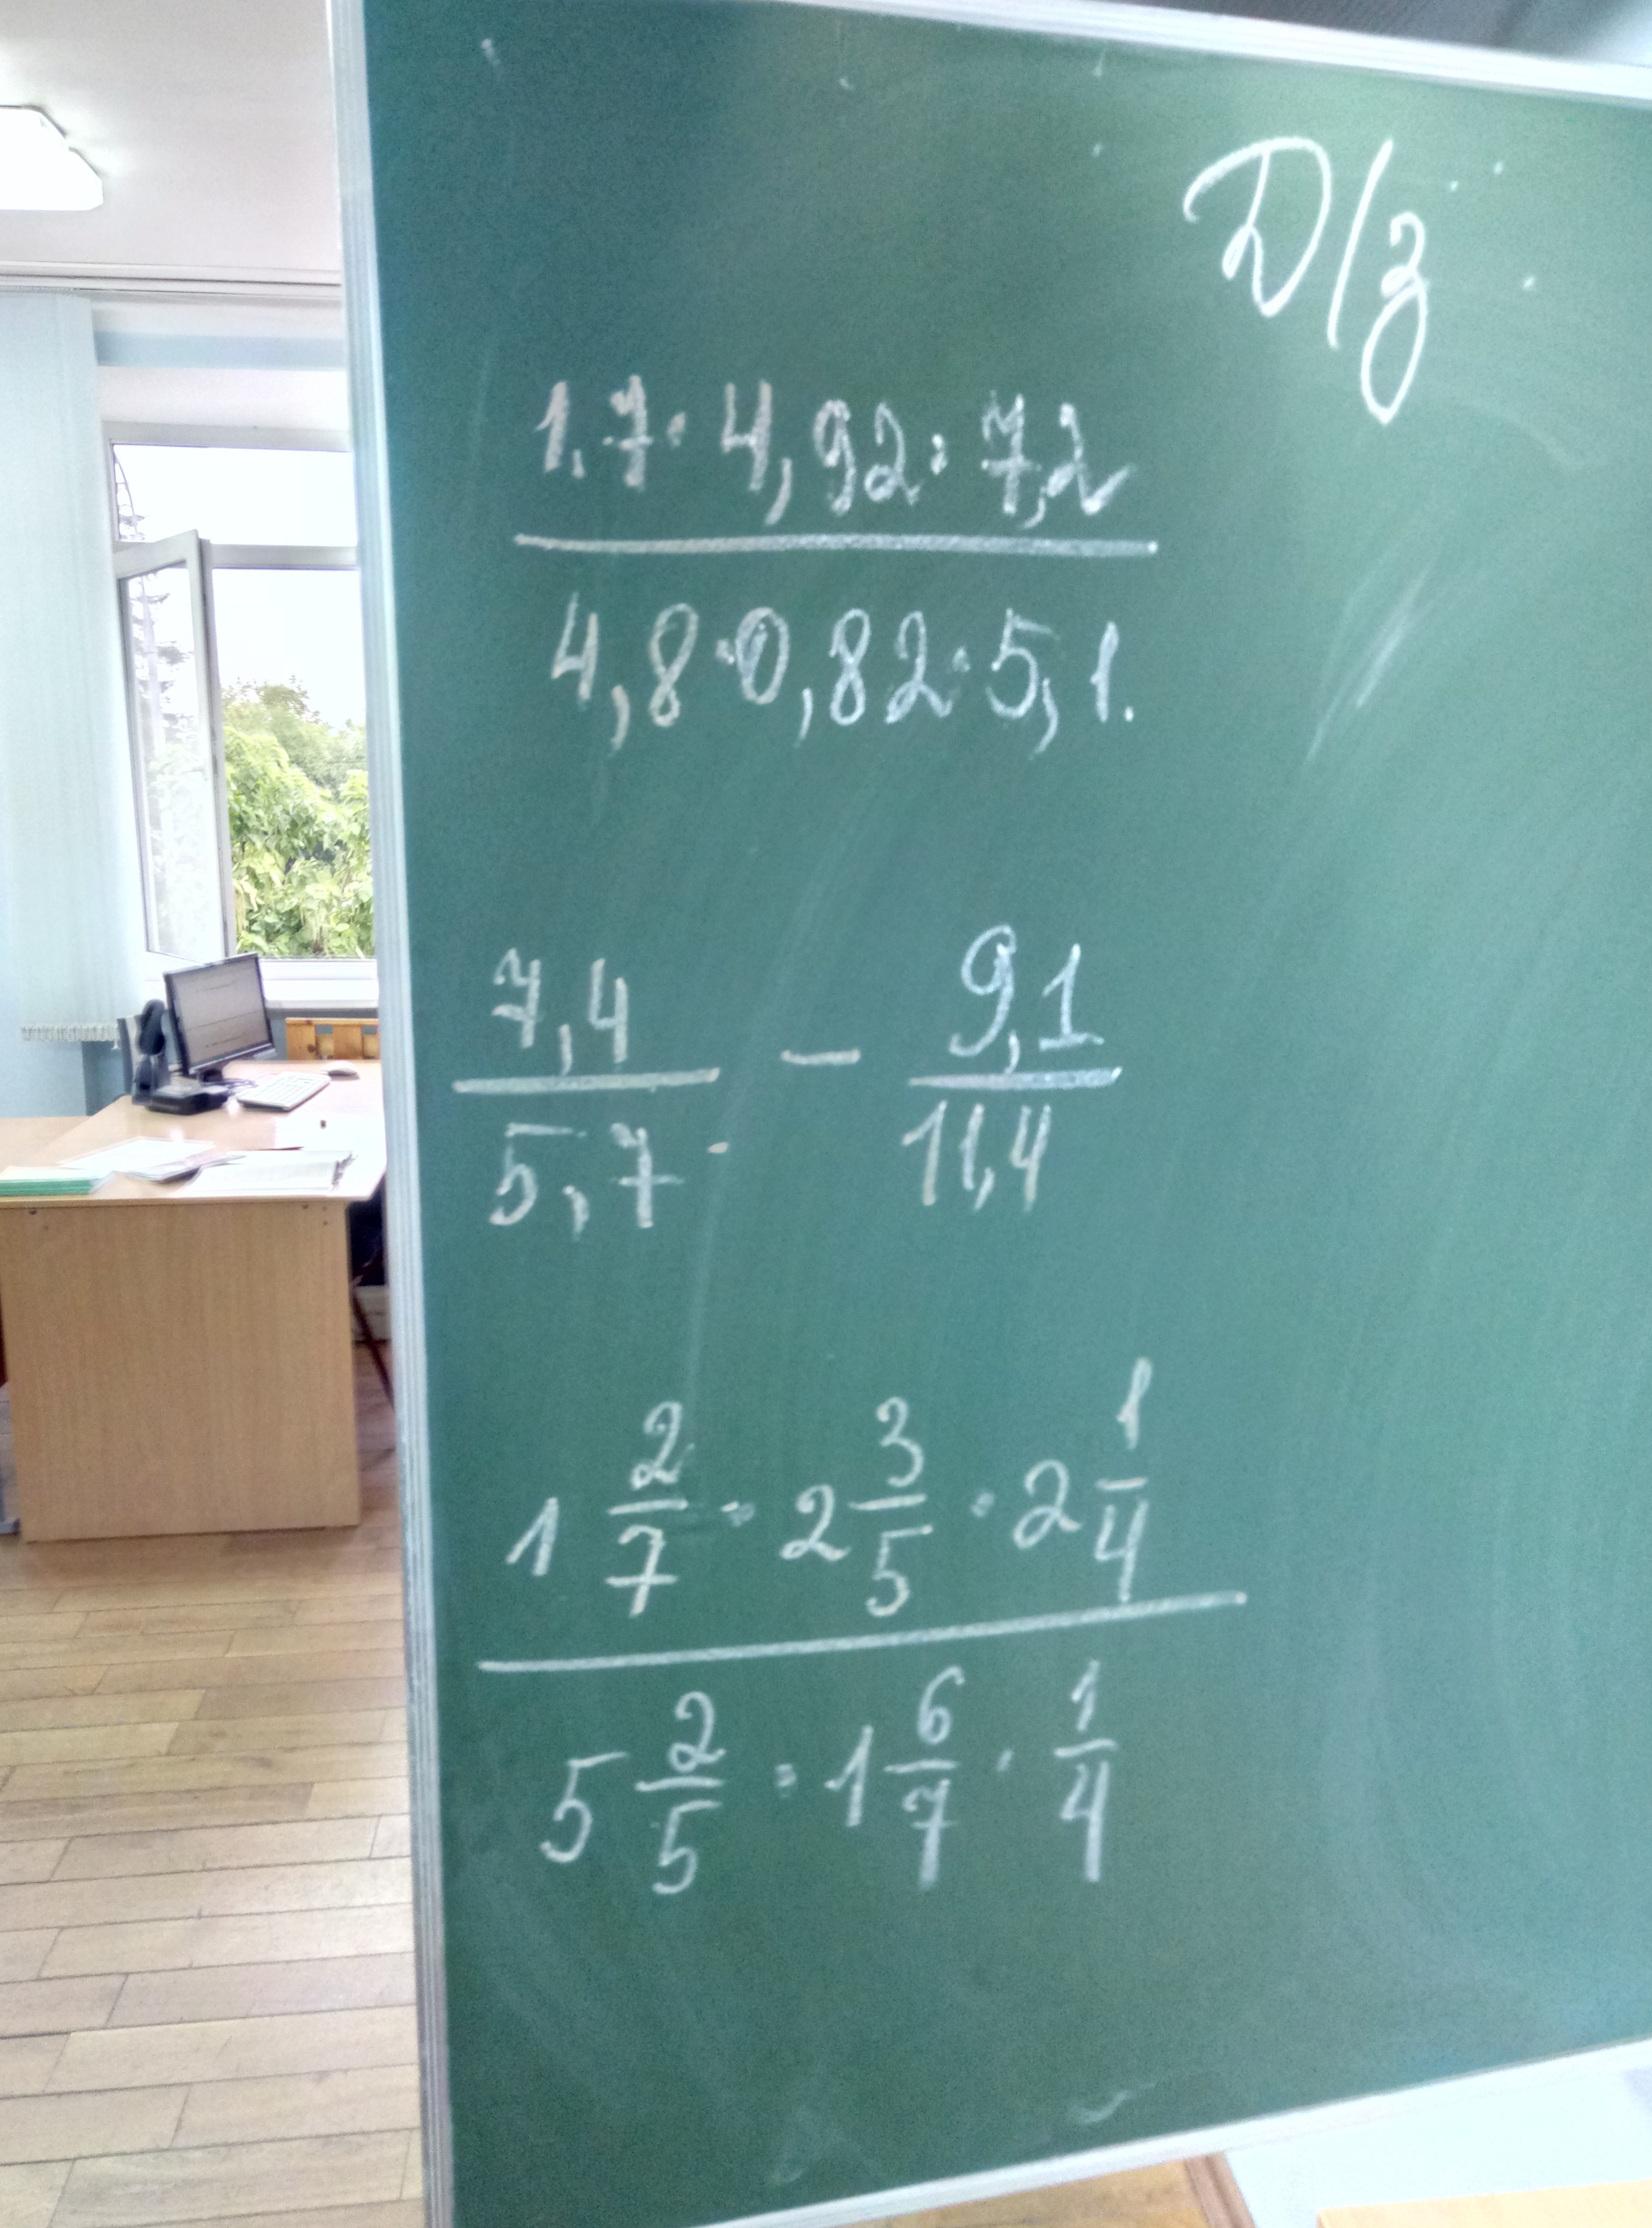 Д/з
1,7 · 4,92 · 7,2
4,8 · 0,82 · 5,1.
7,4 — 9,1
5,7 11,4
1 2/7 · 2 3/5 · 2 1/4
5 2/5 · 1 6/7 · 1/4